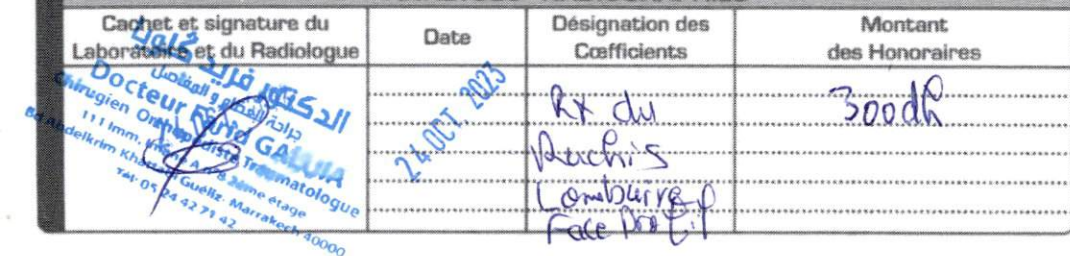 Cachet et signature du
Laboratoire et du Radiologue
Date
Désignation des
Cœfficients
Montant
des Honoraires
الدكتور فريد
جراحة العظام و المفاصل
Docteur Farid
Chirugien Orthopédiste Traumatologue
111 Imm.
Bd Abdelkrim Khattabi Guéliz- Marrakech 40000
Tél: 05 24 42 71 42
24 OCT. 2023
Rx du
Rachis
Lombaire
Face Profil
300dh